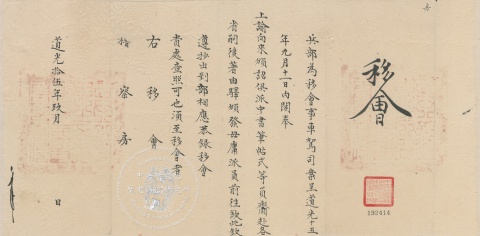 移會
兵部為移會事車駕司案呈道光十五
年九月十二日內閣奉
上諭向來頒詔俱派中書筆帖式等員齎赴各
省嗣後著由驛頒發毋庸派員前往致此欽
遵抄出到部相應恭錄移會
貴處查照可也須至移會者
右移會
稽察房
道光拾伍年玖月
日
192414